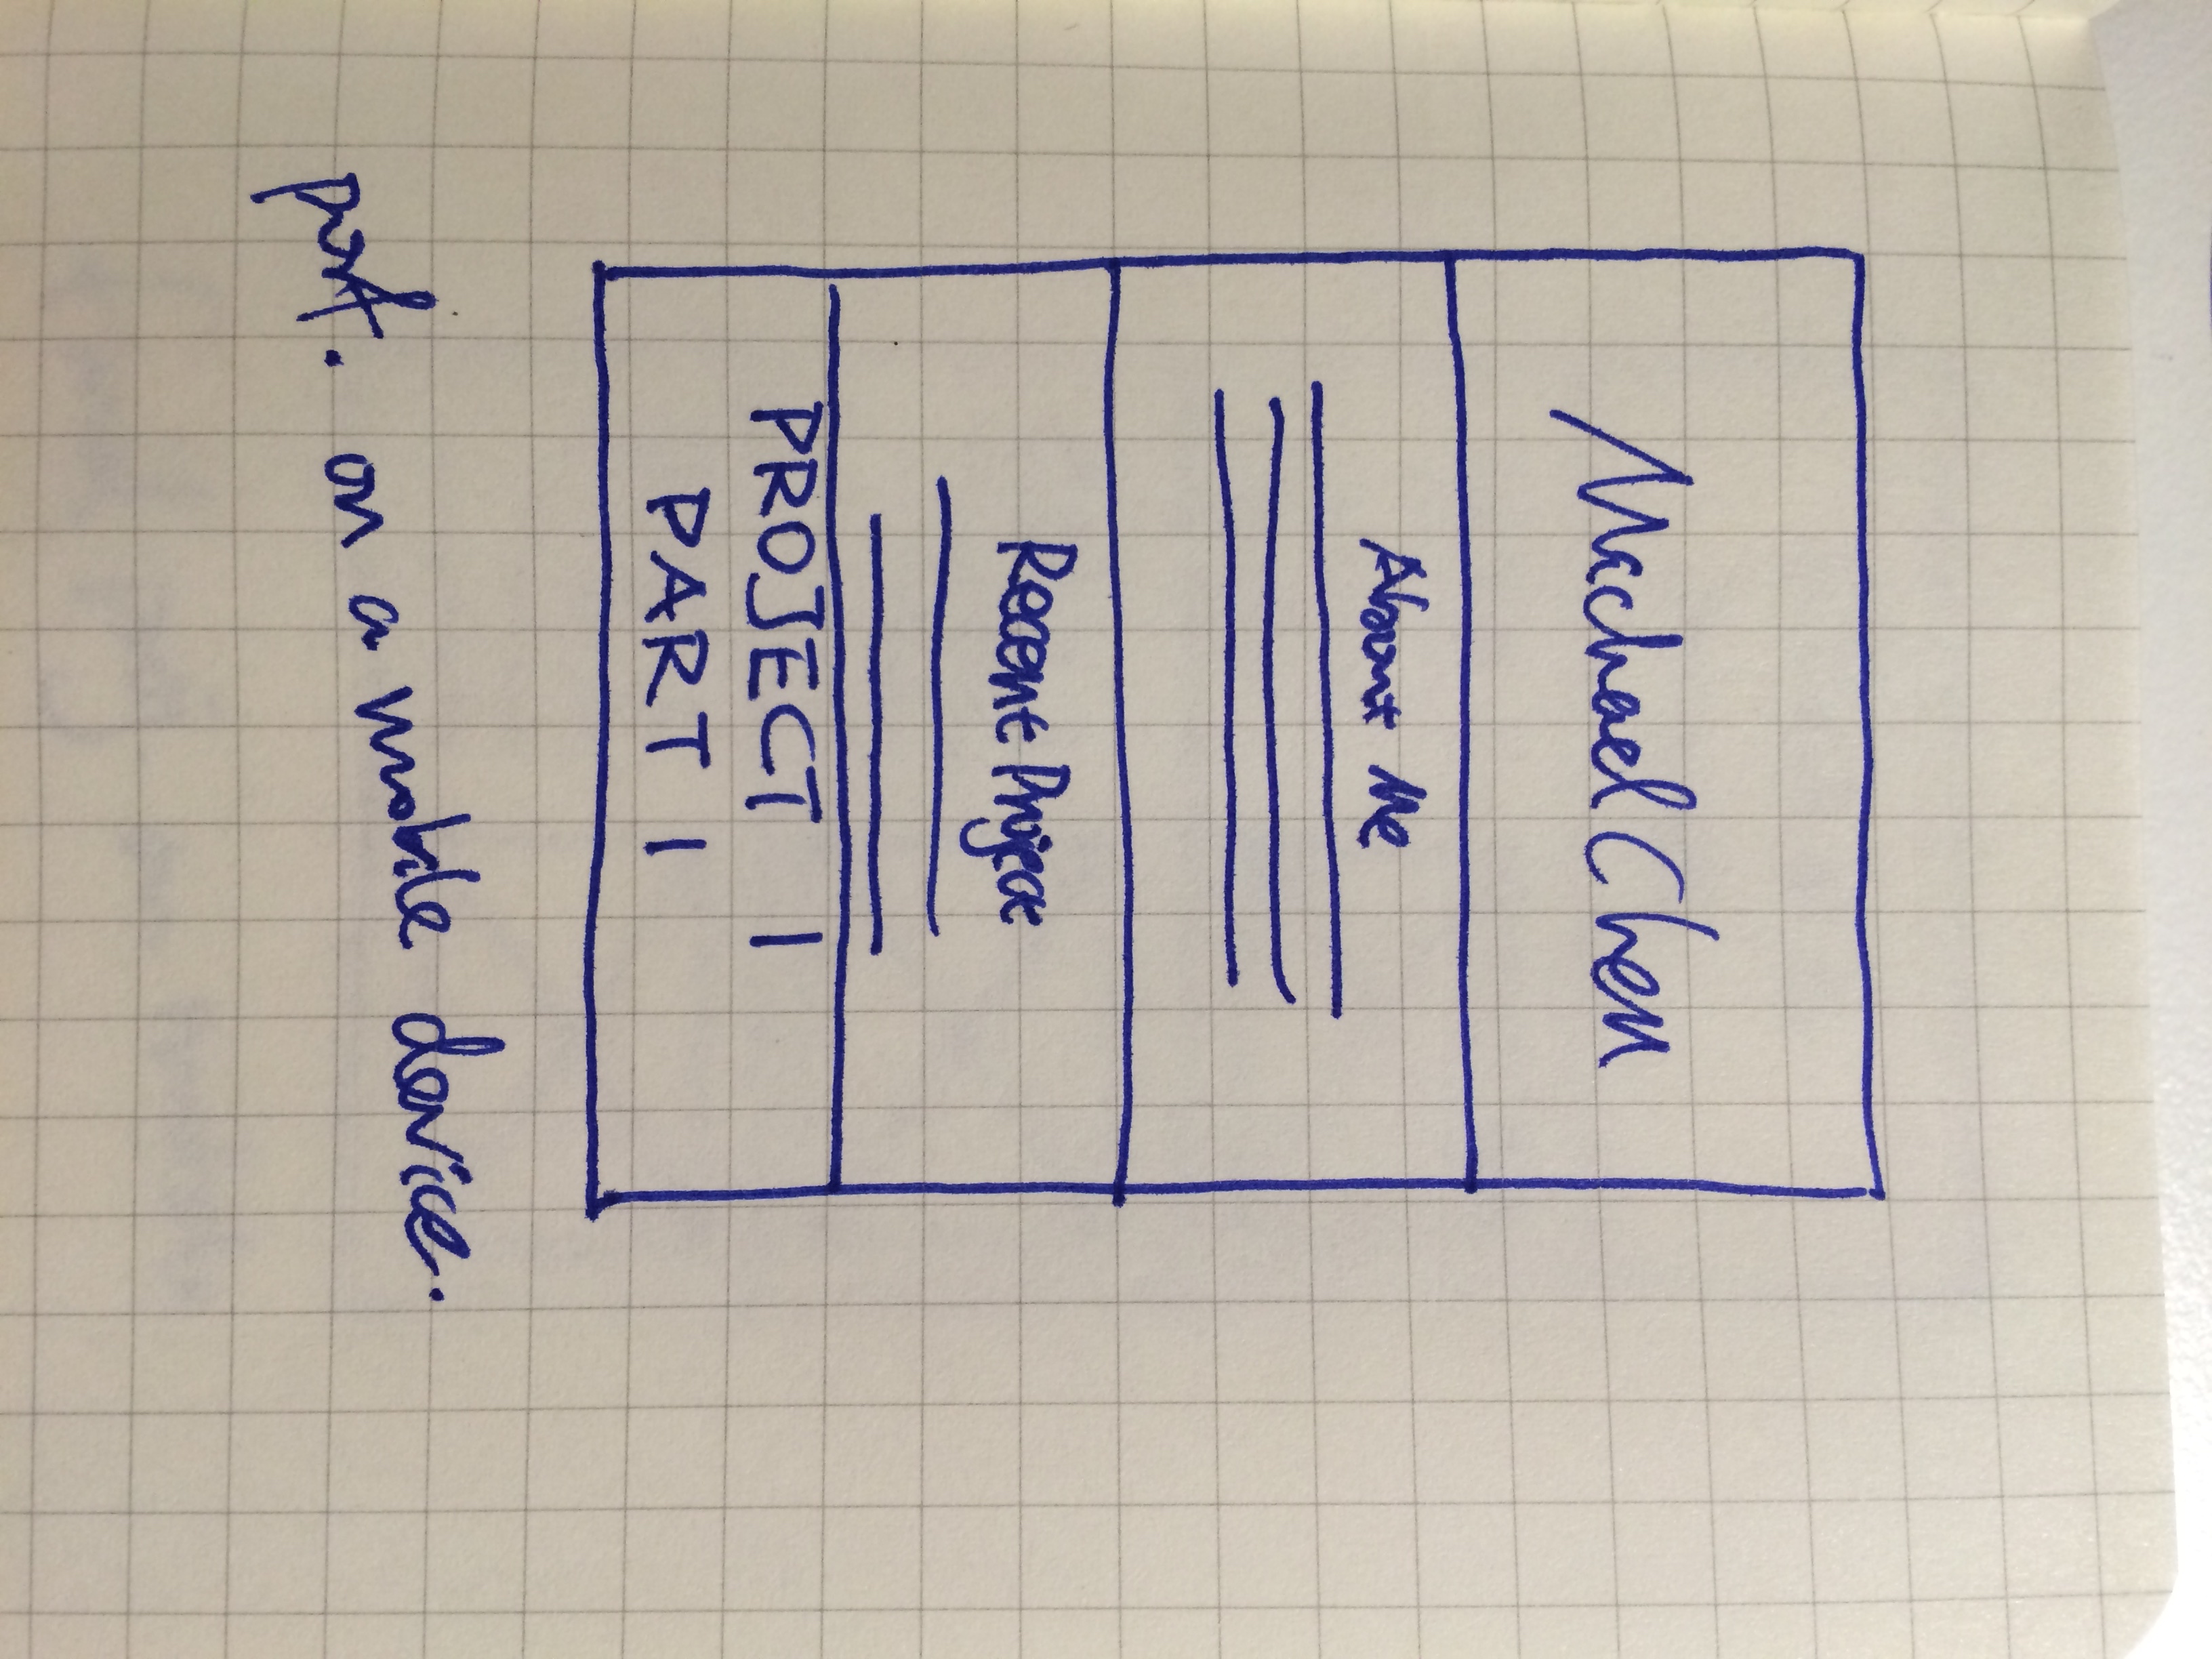 Michael Chen
About Me
Recent Project
PROJECT 1
PART 1
port. on a mobile device.